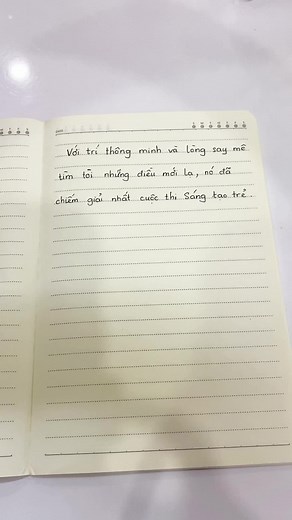 Với trí thông minh và lòng say mê
tìm tòi những điều mới lạ, nó đã
chiếm giải nhất cuộc thi Sáng tạo trẻ